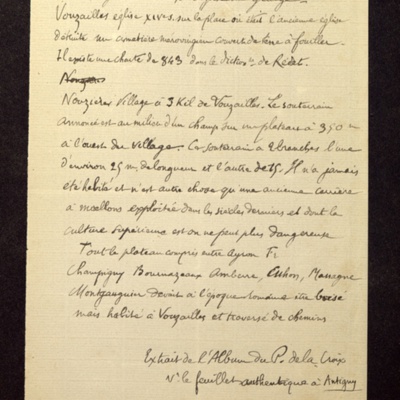 Vouzailles église XIVe s. sur la place où était l'ancienne église
détruite un cimetière mérovingien couvert de terre à fouiller.
Il existe une charte de 843 dans le Dictionre de Rédet.
Nouzières village à 3 Kil de Vouzailles. Le souterrain
annoncé est au milieu d'un champ sur un plateau à 350 m
à l'ouest du village. Ce souterrain a 2 branches l'une
d'environ 25 m, de longueur et l'autre de 15. Il n'a jamais
été habité et n'est autre chose qu'une ancienne carrière
à moellons exploitée dans les siècles derniers et dont la
culture supérieure est on ne peut plus dangereuse
Tout le plateau compris entre Ayron
Champigny Bournazeaux Amberre, Cuhon, Massogne
Montgauguier devait à l'époque romaine être boisé
mais habité à Vouzailles et traversé de chemins
Extrait de l'Album du P. de la Croix
le feuillet authentique à Antigny